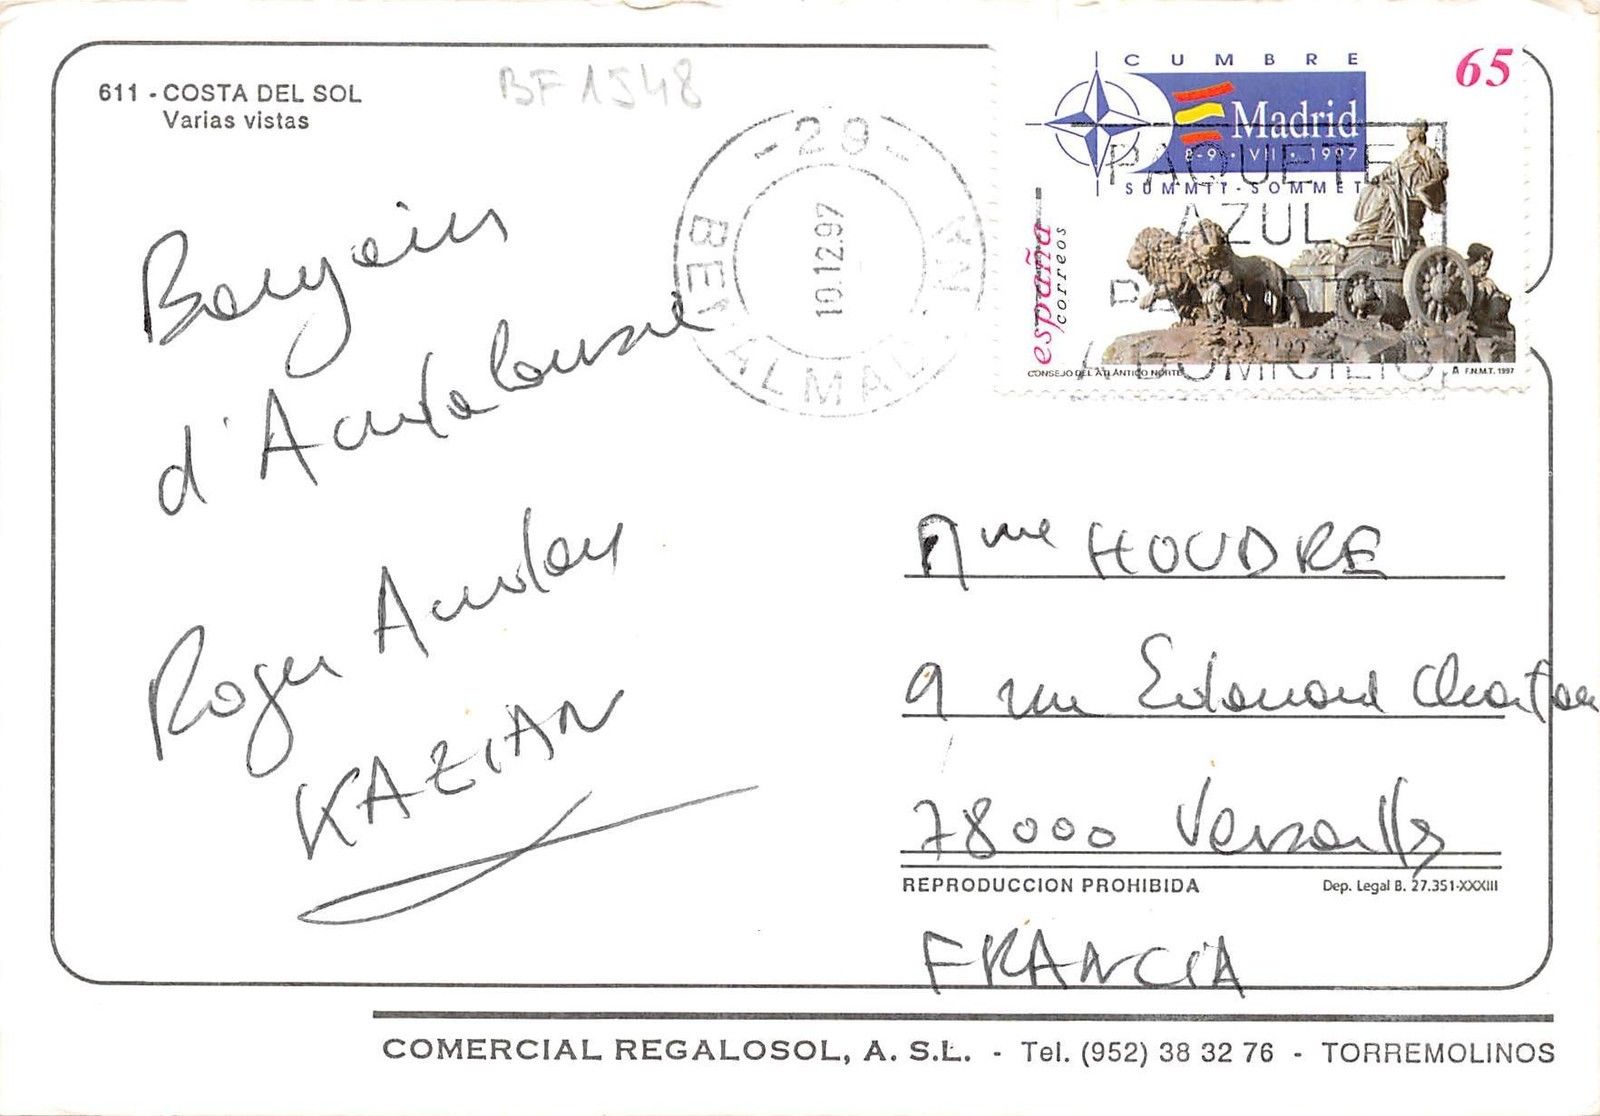 611 - COSTA DEL SOL
Varias vistas
BF 1548
- 29 -
BENALMADENA
10.12.97
CUMBRE
Madrid
8-9 • VII • 1997
SUMMIT - SOMMET
65
españa
correos
CONSEJO DEL ATLÁNTICO NORTE
F.N.M.T. 1997
PAQUETE
AZUL
A DOMICILIO
d'Andalousie
Roger
KAZIAN
Mme HOUDRE
9 rue Edouard Charton
78000 Versailles
REPRODUCCION PROHIBIDA
Dep. Legal B. 27.351-XXXIII
FRANCIA
COMERCIAL REGALOSOL, A. S.L. - Tel. (952) 38 32 76 - TORREMOLINOS